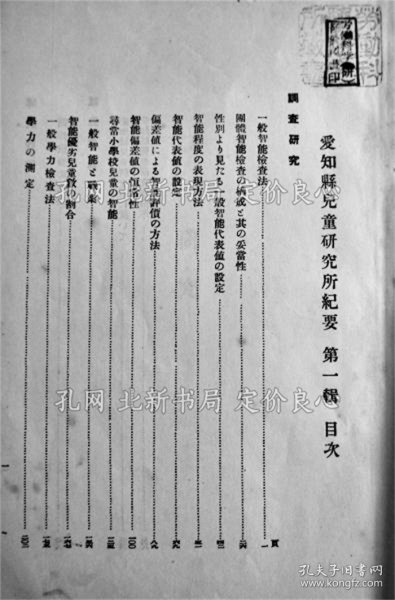 愛知縣兒童研究所紀要 第一輯 目次
調査研究
頁
一般智能檢査法 一
團體智能檢査の構成と其の妥當性
性別より見たる一般智能代表値の設定
智能程度の表現方法
智能代表値の設定
偏差値による智力評價の方法
智能偏差値の恒常性
尋常小學校兒童の智能
一般智能と職業
智能優劣兒童數の割合
一般學力檢査法
學力の測定
孔网 北新书局 定价良心
孔网 北新书局 定价良心
孔夫子旧书网
www.kongfz.com